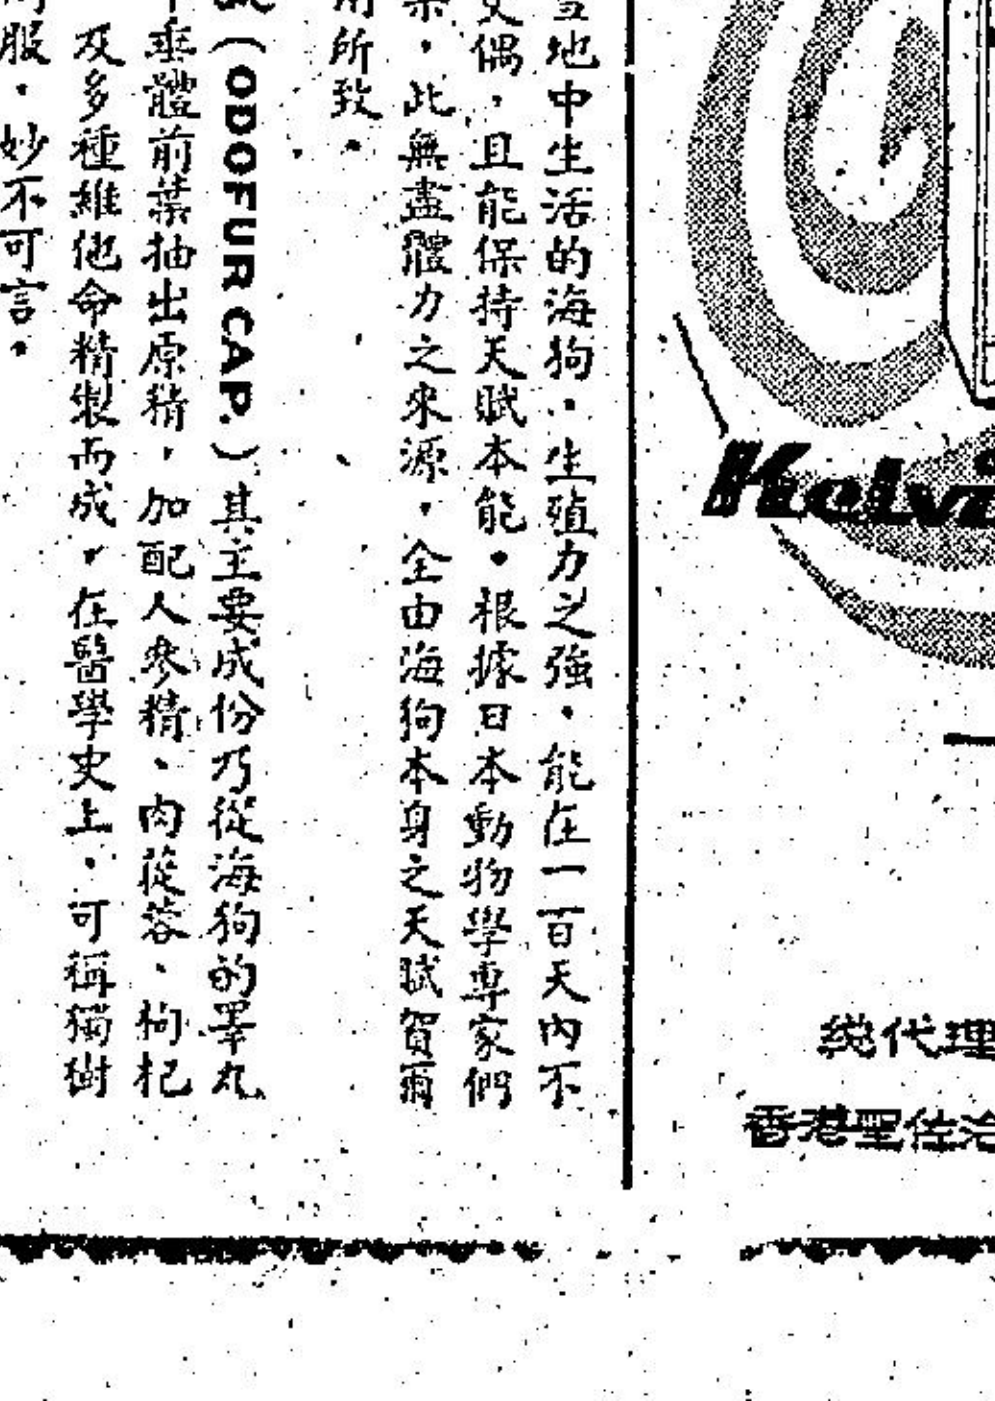 雪地中生活的海狗，生殖力之強，能在一百天內不
交偶，且能保持天賦本能。根據日本動物學專家們
果，此無盡體力之來源，全由海狗本身之天賦賀爾
用所致。
(ODOFUR CAP.) 其主要成份乃從海狗的睪丸
垂體前葉抽出原精，加配人參精、肉蓯蓉、枸杞
及多種維他命精製而成，在醫學史上，可稱獨樹
服，妙不可言。
Kelvi
總代理
香港聖佐治